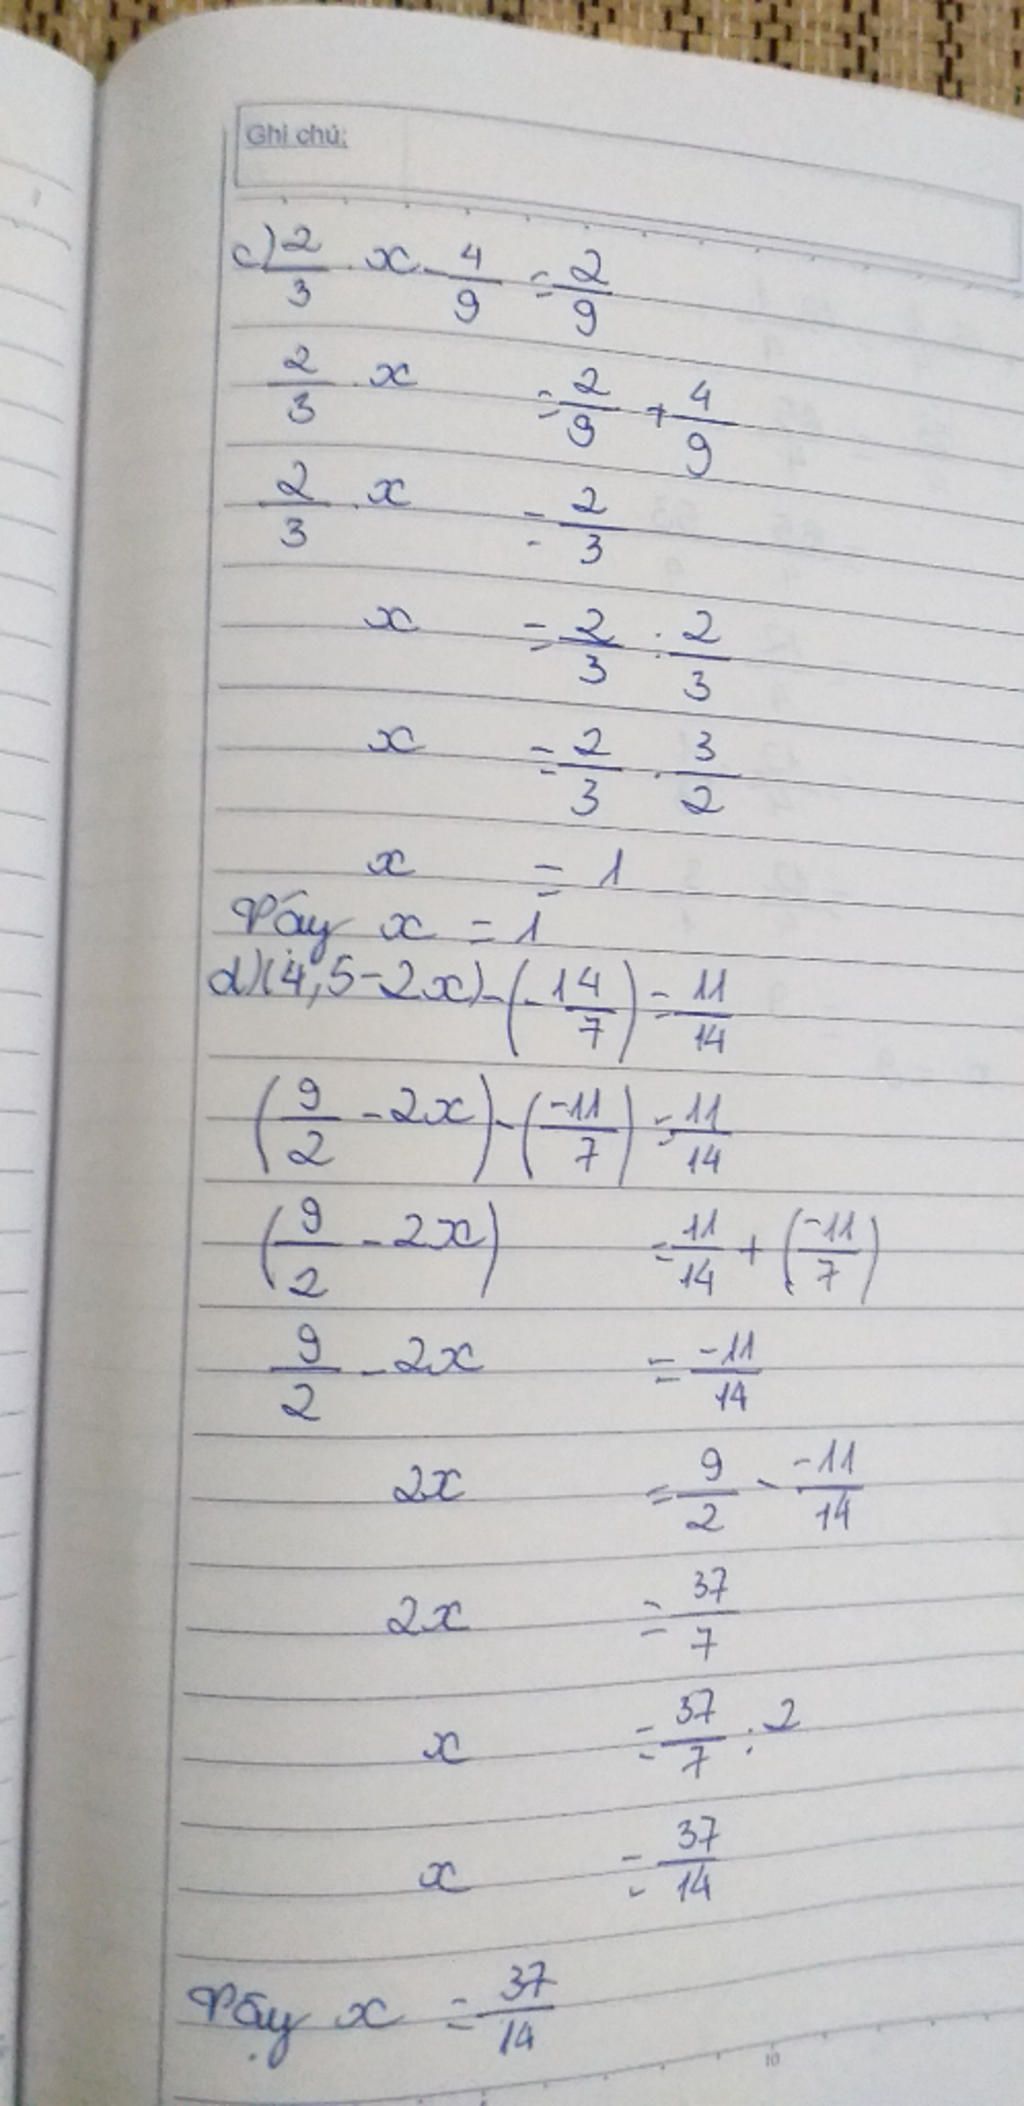 Ghi chú:
c) 2/3 . x - 4/9 = 2/9
2/3 . x = 2/9 + 4/9
2/3 . x = 2/3
x = 2/3 : 2/3
x = 2/3 . 3/2
x = 1
Vậy x = 1
d) (4,5 - 2x) - (-14/7) = 11/14
(9/2 - 2x) - (-11/7) = 11/14
(9/2 - 2x) = 11/14 + (-11/7)
9/2 - 2x = -11/14
2x = 9/2 - -11/14
2x = 37/7
x = 37/7 : 2
x = 37/14
Vậy x = 37/14
10